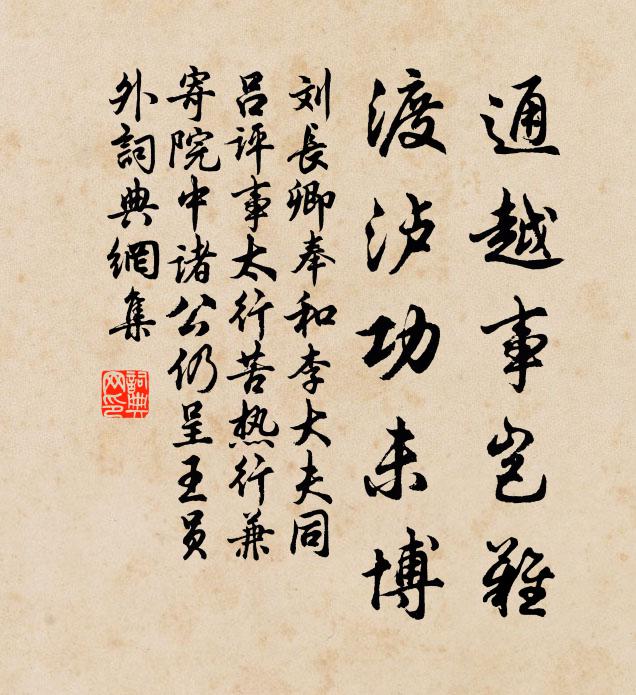 通越事岂難
渡泸功未博
刘長卿奉和李大夫同
吕评事太行苦热行兼
寄院中诸公仍呈王员
外詞典網集
詞典
网印